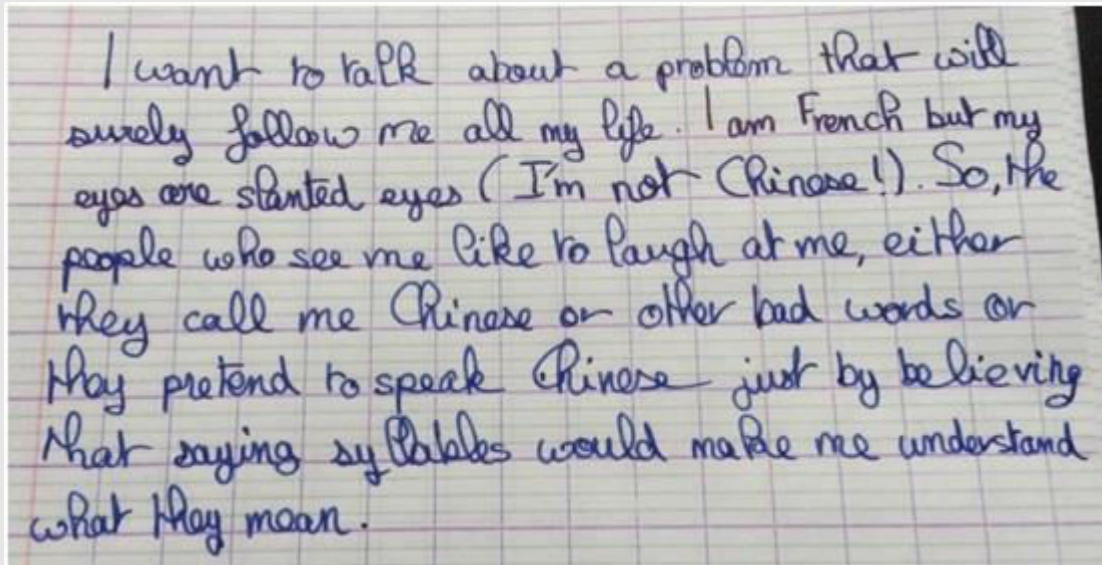 I want to talk about a problem that will
surely follow me all my life. I am French but my
eyes are slanted eyes (I'm not Chinese!). So, the
people who see me like to laugh at me, either
they call me Chinese or other bad words or
they pretend to speak Chinese just by believing
that saying syllables would make me understand
what they mean.